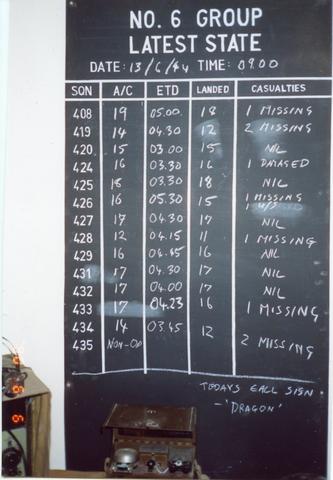 NO. 6 GROUP
LATEST STATE
DATE: 13/6/44 TIME: 09.00
SQN A/C ETD LANDED CASUALTIES
408 19 05.00 18 1 MISSING
419 14 04.30 12 2 MISSING
420 15 03.00 15 NIL
424 16 03.30 16 1 DAMAGED
425 18 03.30 18 NIL
426 16 05.30 15 1 MISSING
1 U/S
427 17 04.30 17 NIL
428 12 04.15 11 1 MISSING
429 16 04.45 16 NIL
431 17 04.30 17 NIL
432 17 04.00 17 NIL
433 17 04.23 16 1 MISSING
434 14 03.45 12 2 MISSING
435 NON-OP
TODAYS CALL SIGN
- 'DRAGON'